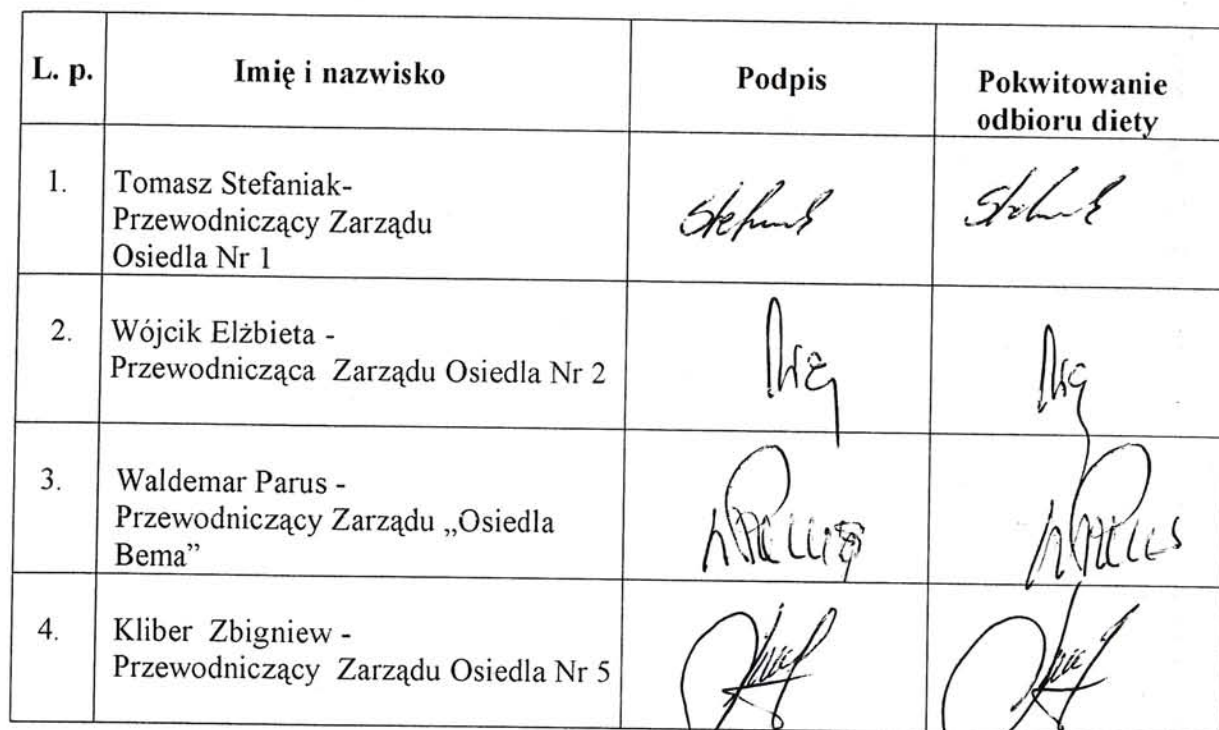 L. p. Imię i nazwisko Podpis Pokwitowanie
odbioru diety
1. Tomasz Stefaniak-
Przewodniczący Zarządu
Osiedla Nr 1
2. Wójcik Elżbieta -
Przewodnicząca Zarządu Osiedla Nr 2
3. Waldemar Parus -
Przewodniczący Zarządu „Osiedla
Bema”
4. Kliber Zbigniew -
Przewodniczący Zarządu Osiedla Nr 5